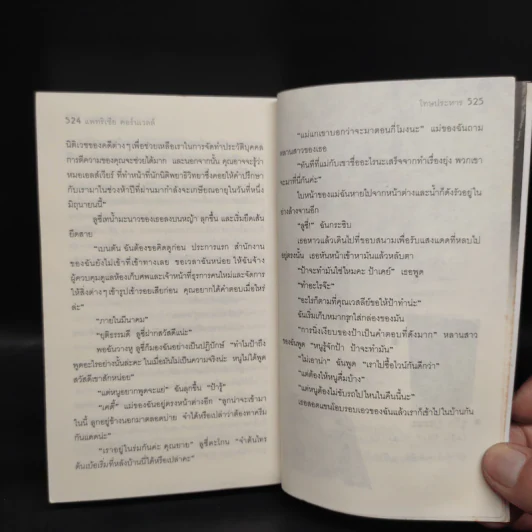 524 แพทริเซีย คอร์นเวลล์
นิติเวชของคดีต่างๆ เพื่อช่วยเหลือเราในการจัดทำประวัติบุคคล
การตีความของคุณจะช่วยได้มาก และนอกจากนั้น คุณอาจจะรู้ว่า
หมอเอลสเวียร์ ที่ทำหน้าที่นักนิติพยาธิวิทยาซึ่งคอยให้คำปรึกษา
กับเรามาในช่วงห้าปีที่ผ่านมากำลังจะเกษียณอายุในวันที่หนึ่ง
มิถุนายนนี้”
ลูซี่เทน้ำมะนาวของเธอลงบนหญ้า ลุกขึ้น และเริ่มยืดเส้น
ยืดสาย
“เบนตัน ฉันต้องขอคิดดูก่อน ประการแรก สำนักงาน
ของฉันยังไม่เข้าที่เข้าทางเลย ขอเวลาฉันหน่อย ให้ฉันจ้าง
ผู้ควบคุมดูแลห้องเก็บศพและเจ้าหน้าที่ธุรการคนใหม่และจัดการ
ให้สิ่งต่างๆ เข้ารูปเข้ารอยเสียก่อน คุณอยากได้คำตอบเมื่อไหร่
ล่ะ”
“ภายในมีนาคม”
“ยุติธรรมดี ลูซี่ฝากสวัสดีแน่ะ”
พอฉันวางหู ลูซี่ก็มองฉันอย่างเป็นปฏิปักษ์ “ทำไมป้าถึง
พูดอะไรอย่างนั้นล่ะคะ ในเมื่อมันไม่เป็นความจริงน่ะ หนูไม่ได้พูด
สวัสดีเขาสักหน่อย”
“แต่หนูอยากพูดจะแย่” ฉันลุกขึ้น “ป้ารู้”
“เคที่” แม่ของฉันอยู่ตรงหน้าต่างอีก “ลูกน่าจะเข้ามา
ในนี้ ลูกอยู่ข้างนอกมาตลอดบ่าย จำได้หรือเปล่าว่าต้องทาครีม
กันแดดน่ะ”
“เราอยู่ในร่มกันค่ะ คุณยาย” ลูซี่ตะโกน “จำต้นไทร
ต้นเบ้อเริ่มที่หลังบ้านนี้ได้หรือเปล่าคะ”
โทษประหาร 525
“แม่แกเขาบอกว่าจะมาตอนกี่โมงนะ” แม่ของฉันถาม
หลานสาวของเธอ
“ทันทีที่แม่กับเขาชื่ออะไรนะเสร็จจากทำเรื่องยุ่ง พวกเขา
จะมาที่นี่กันค่ะ”
ใบหน้าของแม่ฉันหายไปจากหน้าต่างและน้ำก็ดังรัวอยู่ใน
อ่างล้างจานอีก
“ลูซี่!” ฉันกระซิบ
เธอหาวแล้วเดินไปที่ขอบสนามเพื่อรับแสงแดดที่หลบไม่
อยู่ตรงนั้น เธอหันหน้าเข้าหามันแล้วหลับตา
“ป้าจะทำมันใช่ไหมคะ ป้าเคย์” เธอพูด
“ทำอะไรจ๊ะ”
“อะไรก็ตามที่คุณเวสลีย์ขอให้ป้าทำน่ะ”
ฉันเริ่มเก็บหมากรุกใส่กล่องของมัน
“การนิ่งเงียบของป้าเป็นคำตอบที่ดังมาก” หลานสาว
ของฉันพูด “หนูรู้จักป้า ป้าจะทำมัน”
“ไม่เอาน่า” ฉันพูด “เราไปซื้อไวน์กันดีกว่า”
“แต่ต้องให้หนูดื่มบ้าง”
“แต่หนูต้องไม่ขับรถไปไหนในคืนนี้นะ”
เธอสอดแขนโอบรอบเอวของฉันแล้วเราก็เข้าไปในบ้านกัน